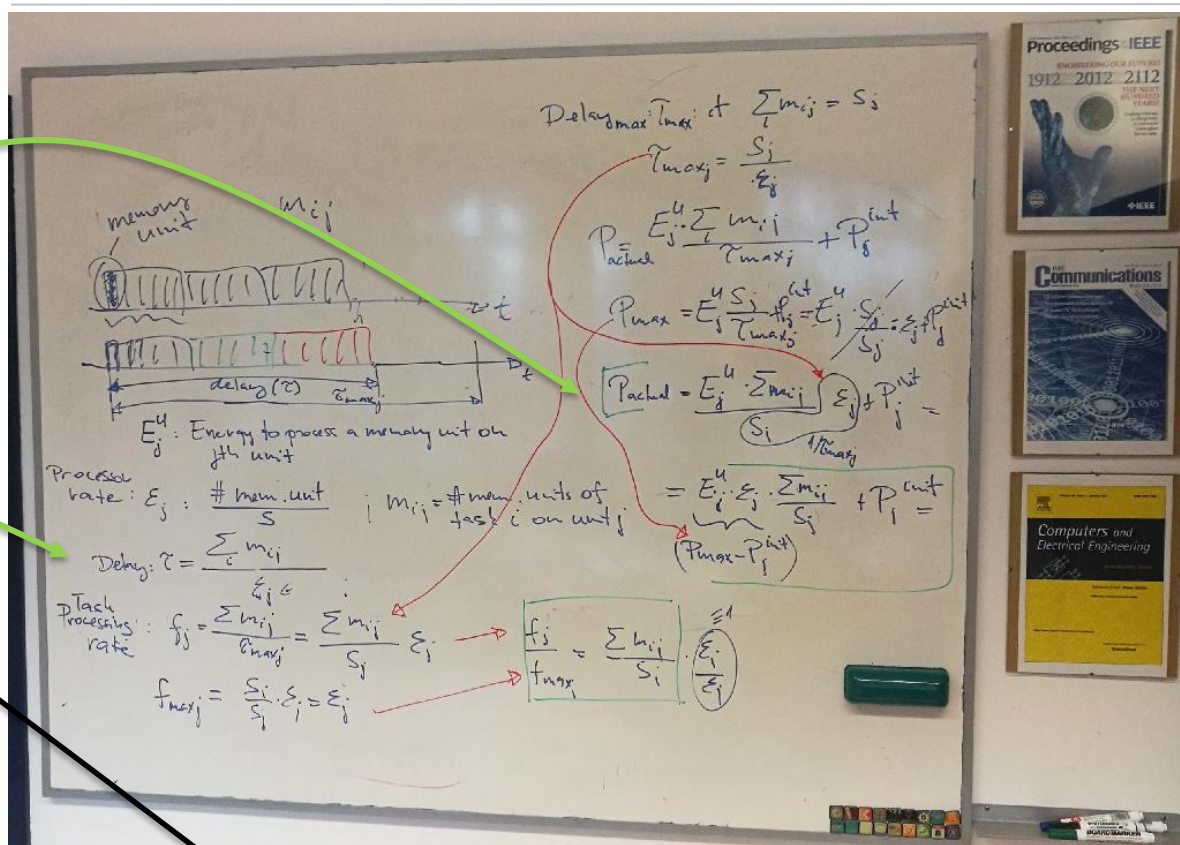 memory unit
m_ij
t
t
delay (τ)
τ_maxj
E_j^u : Energy to process a memory unit on
jth unit
Processor
rate : ε_j : # mem. unit / S ; m_ij = # mem. units of
task i on unit j
Delay: τ = Σ_i m_ij / ε_j
Task
Processing
rate : f_j = Σ m_ij / τ_maxj = Σ m_ij / S_j ε_j
f_maxj = S_j / S_j · ε_j = ε_j
Delay_max : τ_max : if Σ_i m_ij = S_j
τ_maxj = S_j / ε_j
P_actual = E_j^u · Σ_i m_ij / τ_maxj + P_j^init
P_max = E_j^u S_j / τ_maxj + P_j^init = E_j^u · S_j / S_j · ε_j + P_j^init
P_actual = E_j^u · Σ m_ij / S_j ε_j + P_j^init =
1/τ_maxj
= E_j^u · ε_j · Σ m_ij / S_j + P_j^init =
(P_max - P_j^init)
f_j / f_maxj = Σ m_ij / S_j · ε_j / ε_j
=1
Proceedings OF THE IEEE
ENGINEERING OUR FUTURE:
1912 2012 2112
THE NEXT
HUNDRED
YEARS!
IEEE
IEEE
Communications
Computers and
Electrical Engineering
BOARDMARKER